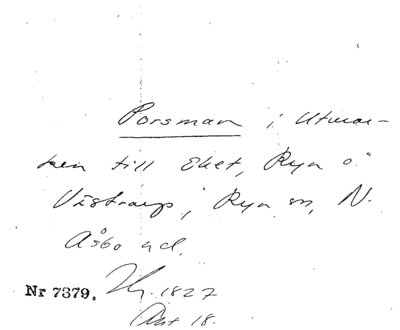 Porsman i Utmar-
ken till Eket, Rya o.
Västraup, Rya sn, N.
Åsbo hd.
Nr 7379. 1827
Akt 18.